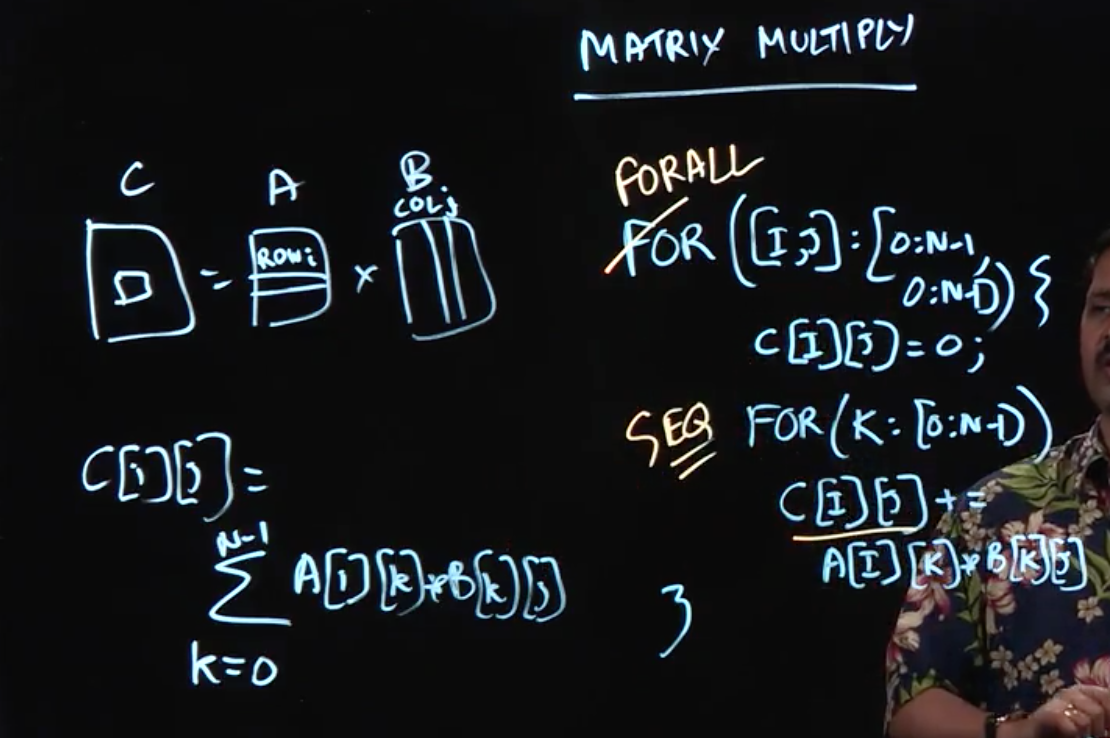 MATRIX MULTIPLY
C
A
B
COLj
ROWi
= ×
C[i][j] =
N-1
Σ A[i][k]*B[k][j]
k=0
FORALL
FOR ([I,j]:[0:N-1,
0:N-1]) {
C[I][j]=0;
SEQ FOR(K:[0:N-1])
C[I][j] +=
A[I][K]*B[K][j]
}